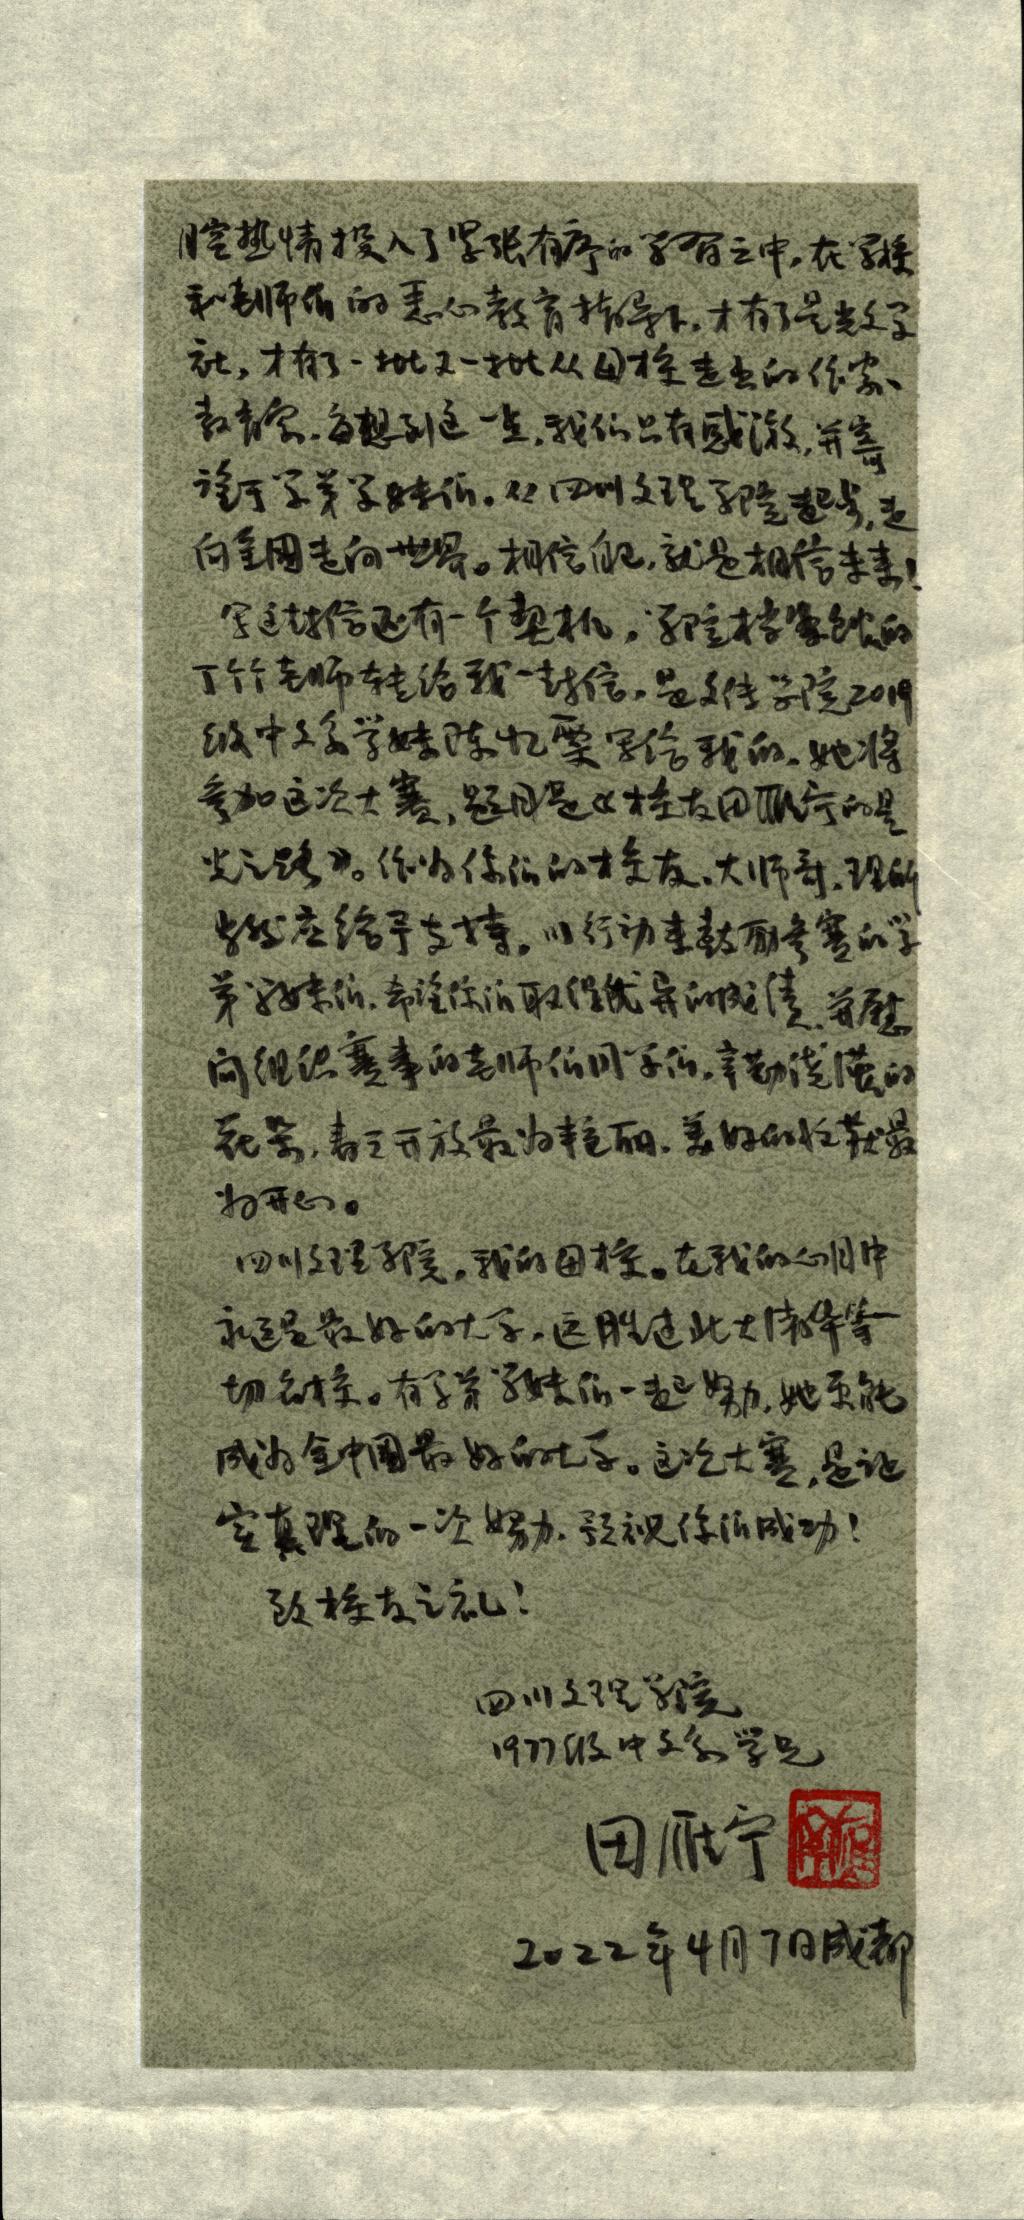 腔热情投入了紧张有序的学习之中。在学校
和老师们的悉心教育指导下，才有了星光文学
社，才有了一批又一批从母校走出的作家、
教育家。每想到这一点，我们只有感激，并寄
望于学弟学妹们。从四川文理学院起步，走
向全国走向世界。相信自己，就是相信未来！
写这封信还有一个契机，学院档案馆的
丁竹老师转给我一封信，是文传学院2019
级中文系学妹陈忆粟写给我的。她将
参加这次大赛，题目是《校友田雁宁的星
光之路》。作为你们的校友、大师哥，理所
当然应给予支持。以行动来鼓励参赛的学
弟学妹们，希望你们取得优异的成绩，并慰
问组织赛事的老师们同学们。辛勤浇灌的
花朵，春天开放最为艳丽，美好的收获最
为开心。
四川文理学院，我的母校。在我的心目中
永远是最好的大学，远胜过北大清华等一
切名校。有学弟学妹们一起努力，她更能
成为全中国最好的大学。这次大赛，是证
实真理的一次努力，预祝你们成功！
致校友之礼！
四川文理学院
1977级中文系学兄
田雁宁
2022年4月7日成都